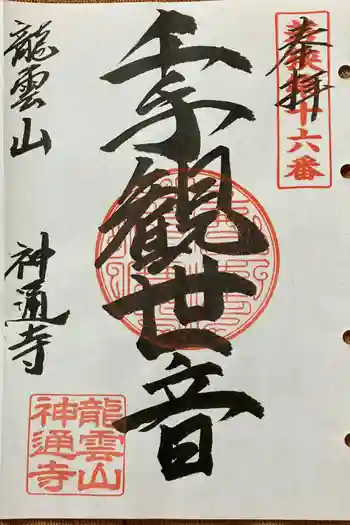 若狭
十六番
奉拝
千手観世音
龍雲山
神通寺
龍雲山
神通寺